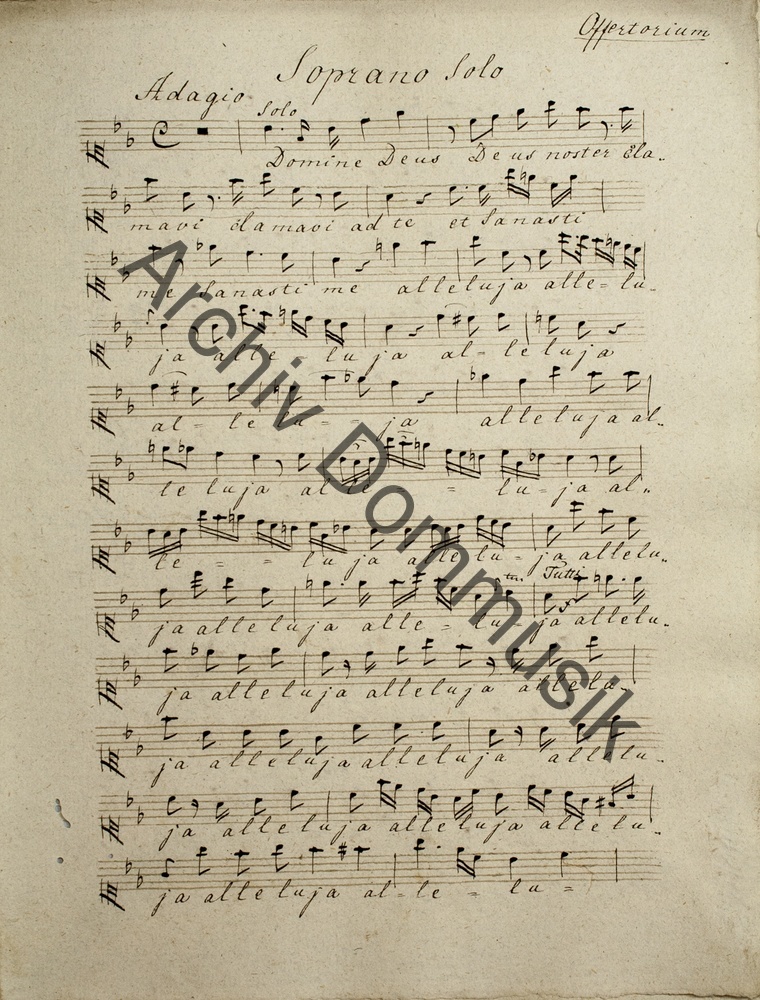 Offertorium
Soprano Solo
Adagio
Solo
Domine Deus Deus noster Cla„
mavi clamavi ad te et Sanasti
me Sanasti me alleluja alle=lu„
ja alle=luja al=leluja
al=lelu=ja alleluja al„
leluja alle=lu=ja al„
le==luja allelu=ja allelu„
tr Tutti
ja alleluja alle=lu=ja allelu„
f
ja alleluja alleluja allelu„
ja alleluja alleluja allelu„
ja alleluja alleluja allelu„
ja alleluja al=le=lu=
Archiv Dommusik